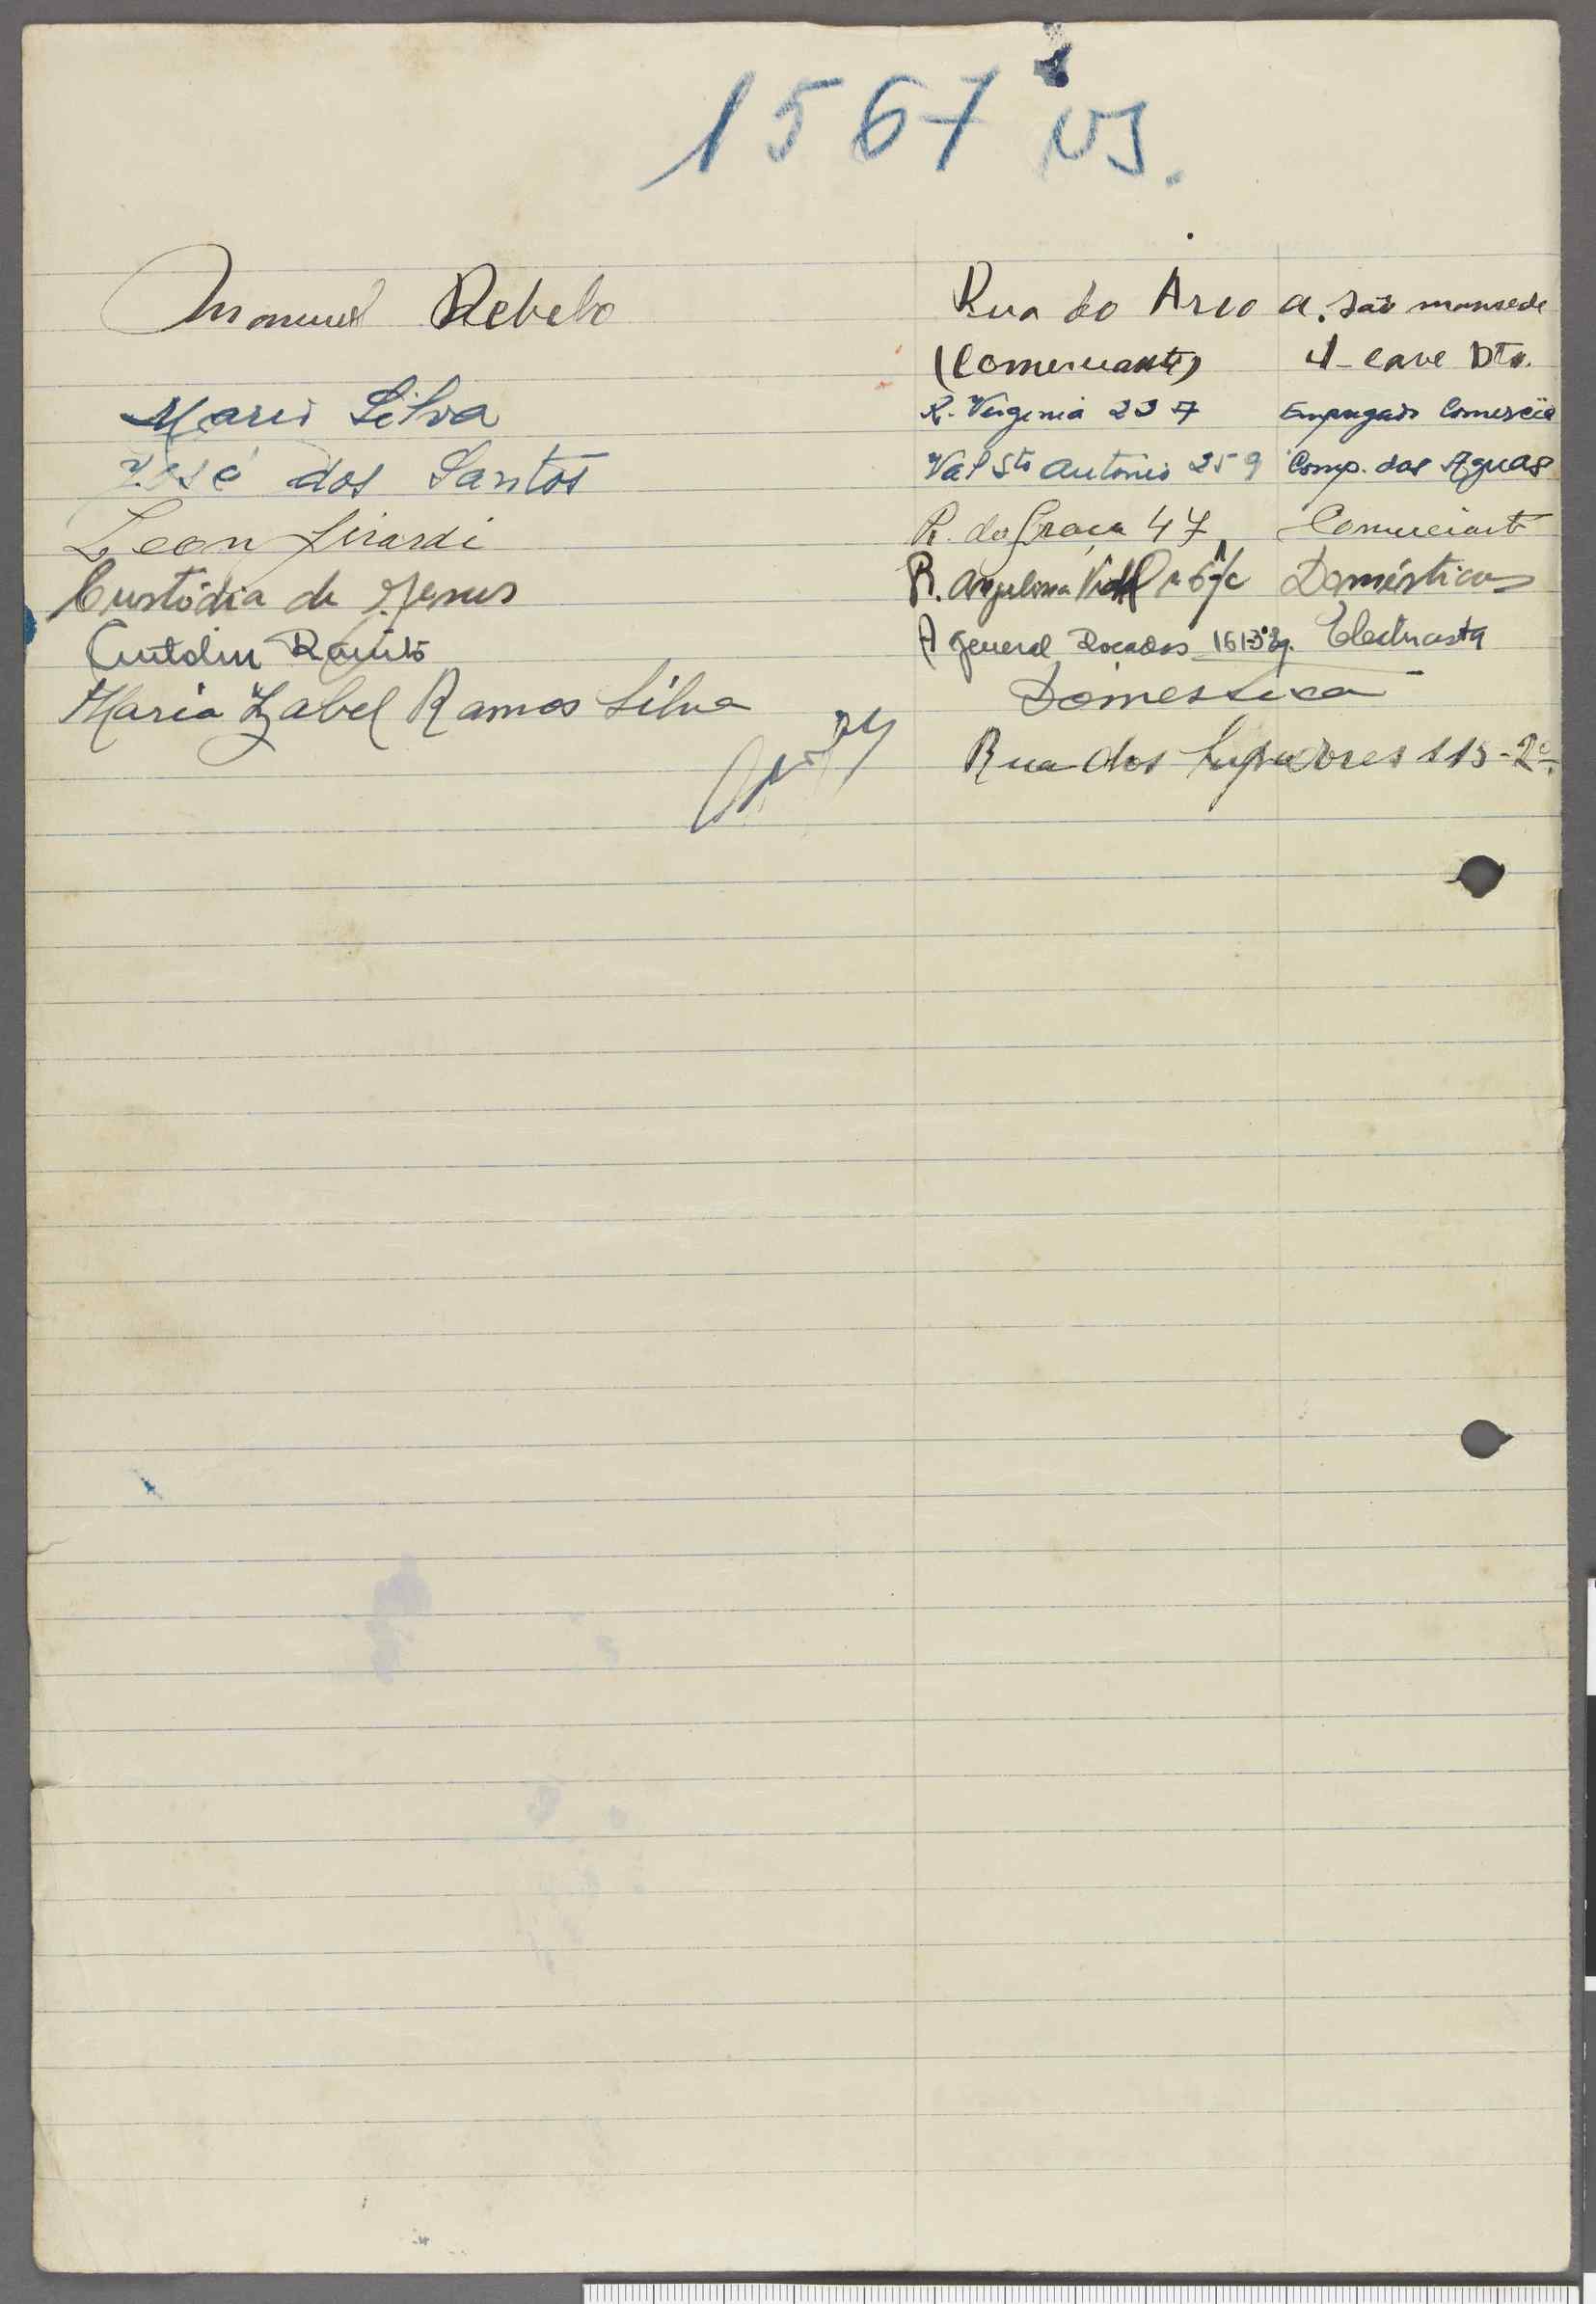 1567 vs.
Manuel Rebelo Rua do Arco a. São mamede
(Comerciante) 1- cave Dto.
Mario Silva R. Virginia 237 Empregado Comercio
José dos Santos Val Sto Antonio 259 Comp. das Aguas
Leon Girardi R. da Graça 47 Comerciante
Custódia de Jesus R. Angelina Vidal Doméstica
Ramito A General Rocadas 161-3º Eq. Electricista
Maria Izabel Ramos Silva Domestica
Rua dos 113-2º